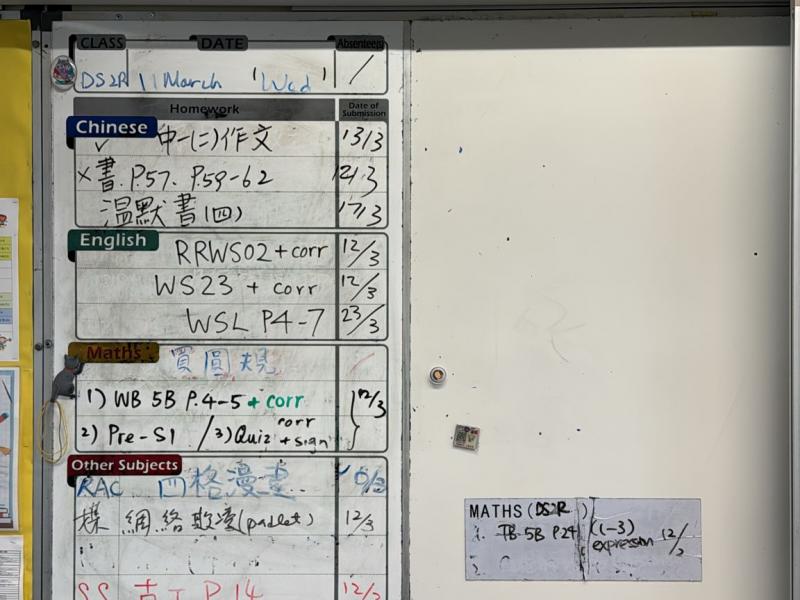 CLASS DATE Absentees
DS2R 11 March (Wed) /
Homework Date of Submission
Chinese
✓ 中一(二)作文 13/3
×書.P.57、P.59-62 12/3
溫默書(四) 17/3
English
RRWS02 + corr 12/3
WS23 + corr 12/3
WSL P4-7 23/3
Maths
買圓規
1) WB 5B P.4-5 + corr 12/3
2) Pre-S1 / 3) Quiz corr + sign
Other Subjects
RAC 四格漫畫
網絡欺凌(padlet) 12/3
P.14 12/3
MATHS (DS2R)
1. TB 5B P.24 ((-3) expression 12/
2